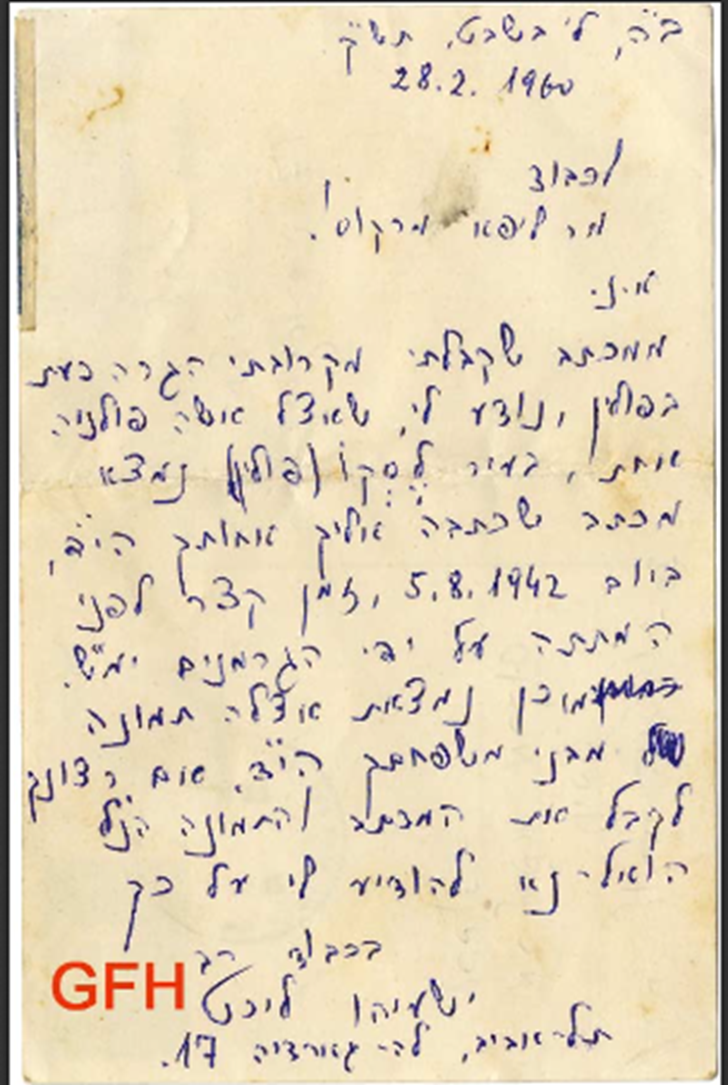 ב"ה, ל' בשבט, תש"ך
28.2. 1960
לכבוד
מר ליפא מרקוס!
א.נ.
ממכתב שקבלתי מקרובתי הגרה כעת
בפולין, נודע לי, שאצל אשה פולניה
אחת, בעיר לסקו (פולין) נמצא
מכתב שכתבה אליך אחותך הי"ד,
ביום 5.8.1942, זמן קצר לפני
המתתה על ידי הגרמנים ימ"ש.
כמו כן נמצאת אצלה תמונה
מבני משפחתך הי"ד. אם רצונך
לקבל את המכתב והתמונה הנ"ל
הואיל-נא להודיע לי על כך
בכבוד רב
ישעיהו ליכט
תל-אביב, לה-גארדיה 17.
GFH